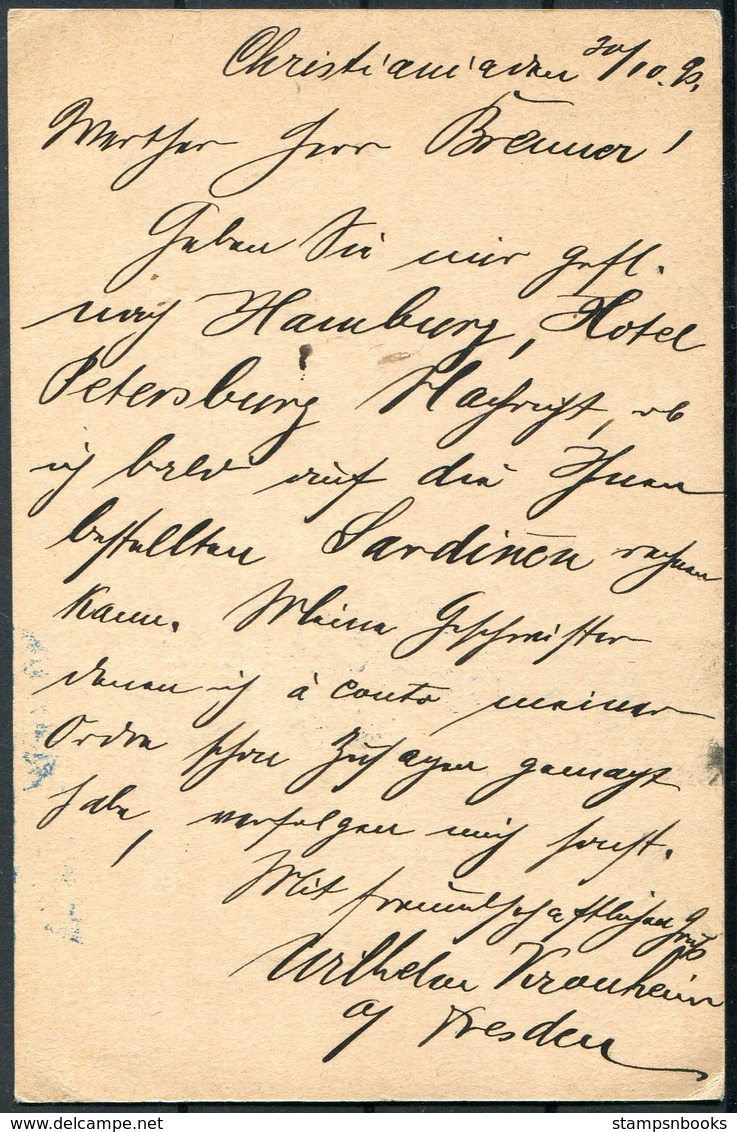 Christiania den 30/10. 90.
Werther Herr Bremer!
Geben Sie mir gefl.
nach Hamburg, Hotel
Petersburg Nachricht, ob
ich bald auf die Ihnen
bestellten Sardinen rechnen
kann. Meine Geschwister
denen ich à conto meiner
Ordre schon Zusagen gemacht
habe, verfolgen mich sonst.
Mit freundschaftlichen Gruß
Wilhelm Kronheim
a/ Dresden
stampsnbooks